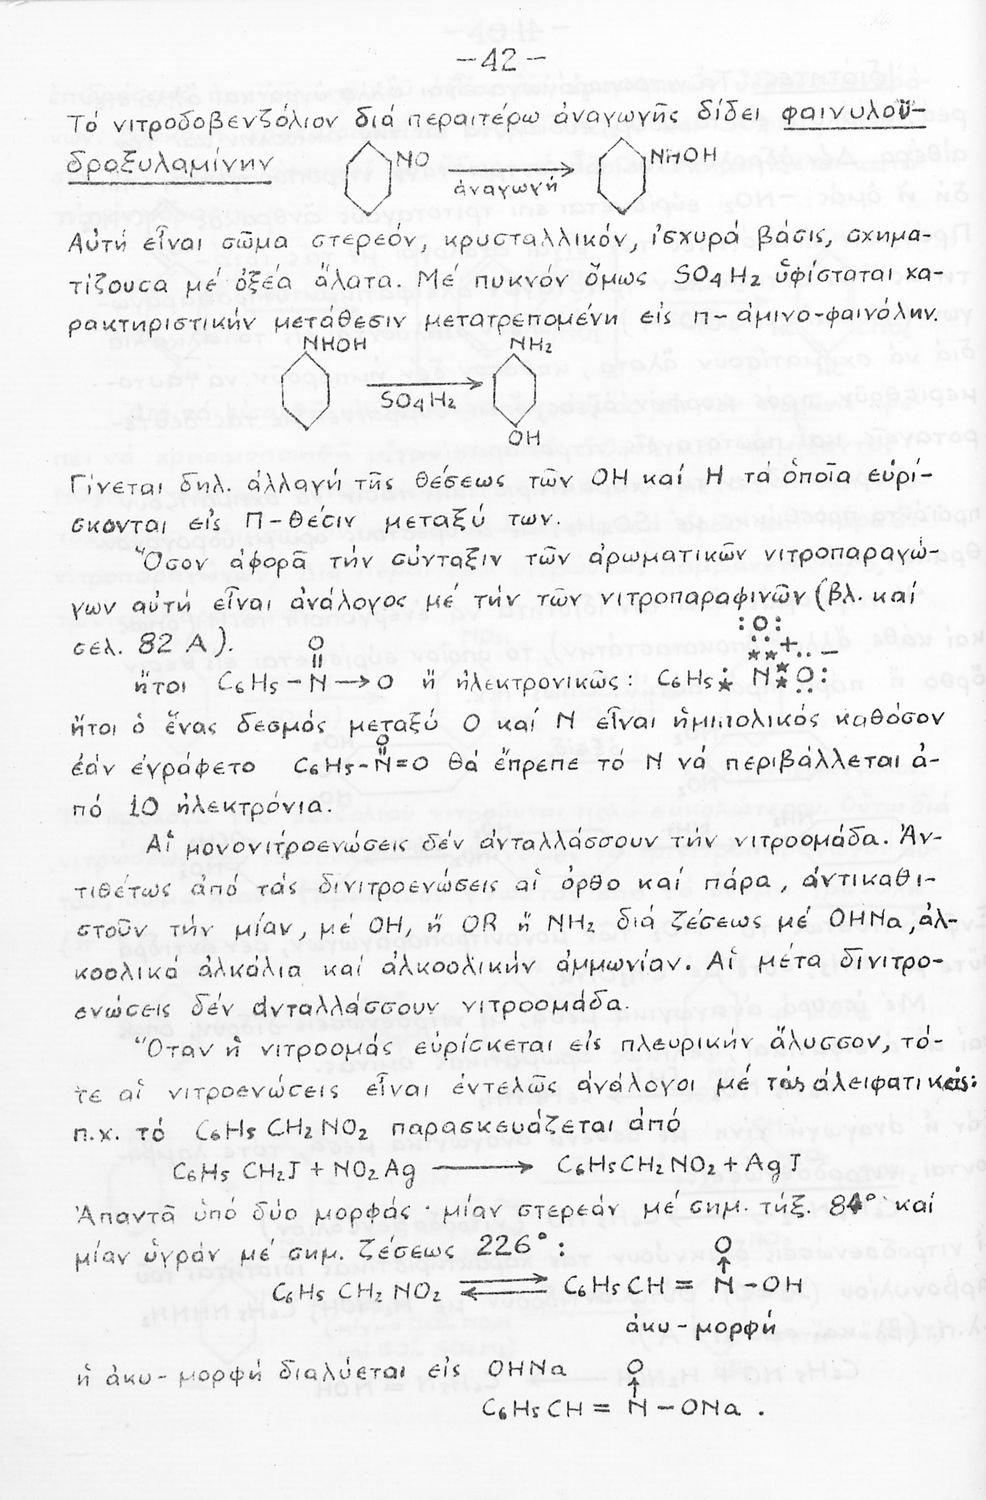 -42-
Τό νιτροδοβενζόλιον διά περαιτέρω ἀναγωγῆς δίδει φαινυλοϋ-
δραξυλαμίνην
NO
ἀναγωγή
NHOH
Αὐτή εἶναι σῶμα στερεόν, κρυσταλλικόν, ἰσχυρά βάσις, σχημα-
τίζουσα μέ ὀξέα ἅλατα. Μέ πυκνόν ὅμως SO4H2 ὑφίσταται χα-
ρακτηριστικήν μετάθεσιν μετατρεπομένη εἰς π-ἀμινο-φαινόλην.
NHOH
NH2
SO4H2
OH
Γίνεται δηλ. ἀλλαγή τῆς θέσεως τῶν OH καί H τά ὁποῖα εὑρί-
σκονται εἰς Π-θέσιν μεταξύ των.
Ὅσον ἀφορᾶ τήν σύνταξιν τῶν ἀρωματικῶν νιτροπαραγώ-
γων αὐτή εἶναι ἀνάλογος μέ τήν τῶν νιτροπαραφινῶν (βλ. καί
σελ. 82 A).
O
ἤτοι C6H5-N→O ἤ ἠλεκτρονικῶς: C6H5 N O:
:O:
+ -
ἤτοι ὁ ἕνας δεσμός μεταξύ O καί N εἶναι ἡμιπολικός καθόσον
O
ἐάν ἐγράφετο C6H5-N=O θά ἔπρεπε τό N νά περιβάλλεται ἀ-
πό 10 ἠλεκτρόνια.
Αἱ μονονιτροενώσεις δέν ἀνταλλάσσουν τήν νιτροομάδα. Ἀν-
τιθέτως ἀπό τάς δινιτροενώσεις αἱ ὀρθο καί πάρα, ἀντικαθι-
στοῦν τήν μίαν, μέ OH, ἤ OR ἤ NH2 διά ζέσεως μέ OHNa, ἀλ-
κοολικά ἀλκάλια καί ἀλκοολικήν ἀμμωνίαν. Αἱ μέτα δινιτρο-
ενώσεις δέν ἀνταλλάσσουν νιτροομάδα.
Ὅταν ἡ νιτροομάς εὑρίσκεται εἰς πλευρικήν ἅλυσσον, τό-
τε αἱ νιτροενώσεις εἶναι ἐντελῶς ἀνάλογοι μέ τάς ἀλειφατικάς:
π.χ. τό C6H5CH2NO2 παρασκευάζεται ἀπό
C6H5CH2J + NO2Ag → C6H5CH2NO2 + AgJ
Ἀπαντᾶ ὑπό δύο μορφάς· μίαν στερεάν μέ σημ. τήξ. 84° καί
μίαν ὑγράν μέ σημ. ζέσεως 226°:
O
↑
C6H5CH2NO2 ⇄ C6H5CH = N-OH
ἀκυ-μορφή
ἡ ἀκυ-μορφή διαλύεται εἰς OHNa
O
↑
C6H5CH = N-ONa.